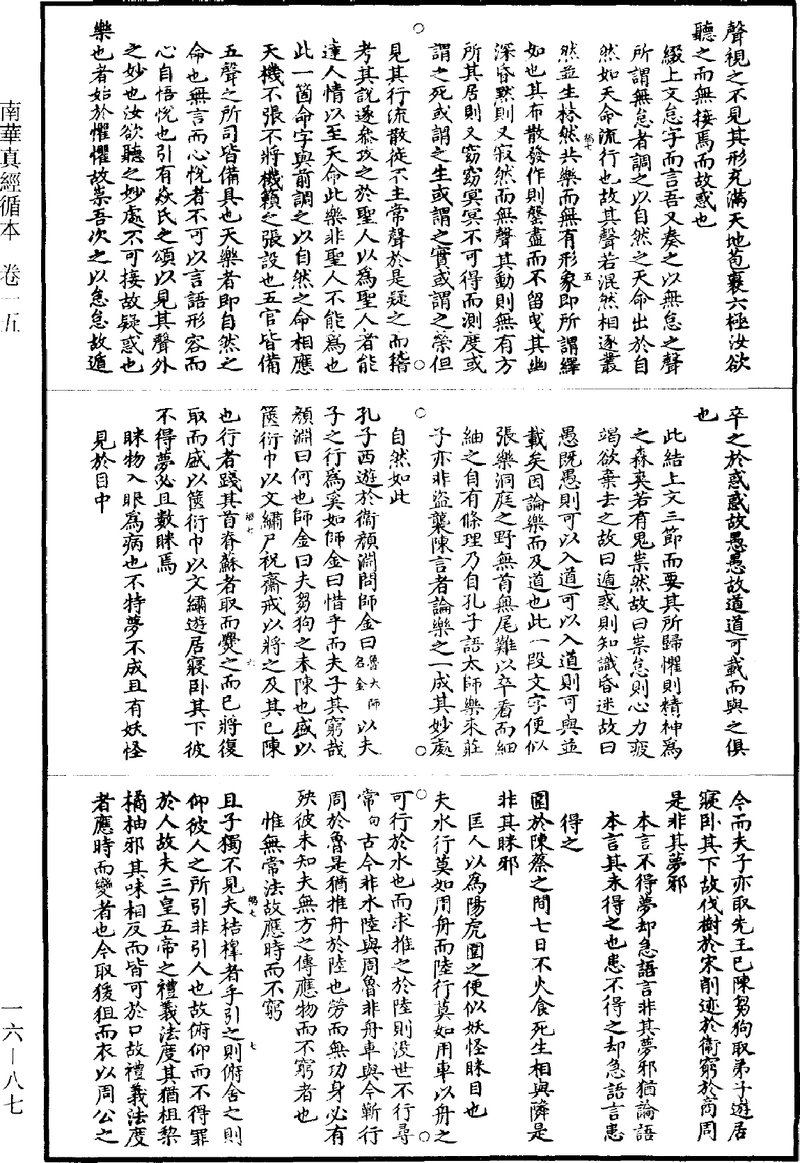 聲視之不見其形充滿天地苞裹六極汝欲
聽之而無接焉而故惑也
綴上文怠字而言吾又奏之以無怠之聲
所謂無怠者調之以自然之天命出於自
然如天命流行也故其聲若混然相逐叢
然並生林然共樂而無有形象即所謂繹
如也其布散發作則罄盡而不留曳其幽
深昏默則又寂然而無聲其動則無有方
所其居則又窈窈冥冥不可得而測度或
謂之死或謂之生或謂之實或謂之榮但
見其行流散徙不主常聲於是疑之而稽
考其說遂參攷之於聖人以為聖人者能
達人情以至天命此樂非聖人不能為也
此一箇命字與前調之以自然之命相應
天機不張不將機籟之張設也五官皆備
五聲之所司皆備具也天樂者即自然之
命也無言而心悅者不可以言語形容而
心自悟悅也引有焱氏之頌以見其聲外
之妙也汝欲聽之妙處不可接故疑惑也
樂也者始於懼懼故祟吾次之以怠怠故遁
卒之於惑惑故愚愚故道道可載而與之俱
也
此結上文三節而要其所歸懼則精神為
之森爽若有鬼祟然故曰祟怠則心力疲
竭欲棄去之故曰遁惑則知識昏迷故曰
愚既愚則可以入道可以入道則可與並
載矣因論樂而及道也此一段文字便似
張樂洞庭之野無首無尾難以卒看而細
紬之自有條理乃自孔子語太師樂來莊
子亦非盜襲陳言者論樂之一成其妙處
自然如此
孔子西遊於衛顏淵問師金曰魯大師名金以夫
子之行為奚如師金曰惜乎而夫子其窮哉
顏淵曰何也師金曰夫芻狗之未陳也盛以
篋衍巾以文繡尸祝齋戒以將之及其已陳
也行者踐其首脊蘇者取而爨之而已將復
取而盛以篋衍巾以文繡遊居寢卧其下彼
不得夢必且數眯焉
眯物入眼為病也不特夢不成且有妖怪
見於目中
今而夫子亦取先王已陳芻狗取弟子遊居
寢卧其下故伐樹於宋削迹於衛窮於商周
是非其夢邪
本言不得夢却急語言非其夢邪猶論語
本言其未得之也患不得之却急語言患
得之
圍於陳蔡之間七日不火食死生相與隣是
非其眯邪
匡人以為陽虎圍之便似妖怪眯目也
夫水行莫如用舟而陸行莫如用車以舟之
可行於水也而求推之於陸則沒世不行尋
常句古今非水陸與周魯非舟車與今蘄行
周於魯是猶推舟於陸也勞而無功身必有
殃彼未知夫無方之傳應物而不窮者也
惟無常法故應時而不窮
且子獨不見夫桔槹者乎引之則俯舍之則
仰彼人之所引非引人也故俯仰而不得罪
於人故夫三皇五帝之禮義法度其猶柤棃
橘柚邪其味相反而皆可於口故禮義法度
者應時而變者也今取猨狙而衣以周公之
南華真經循本 卷一五
一六—八七